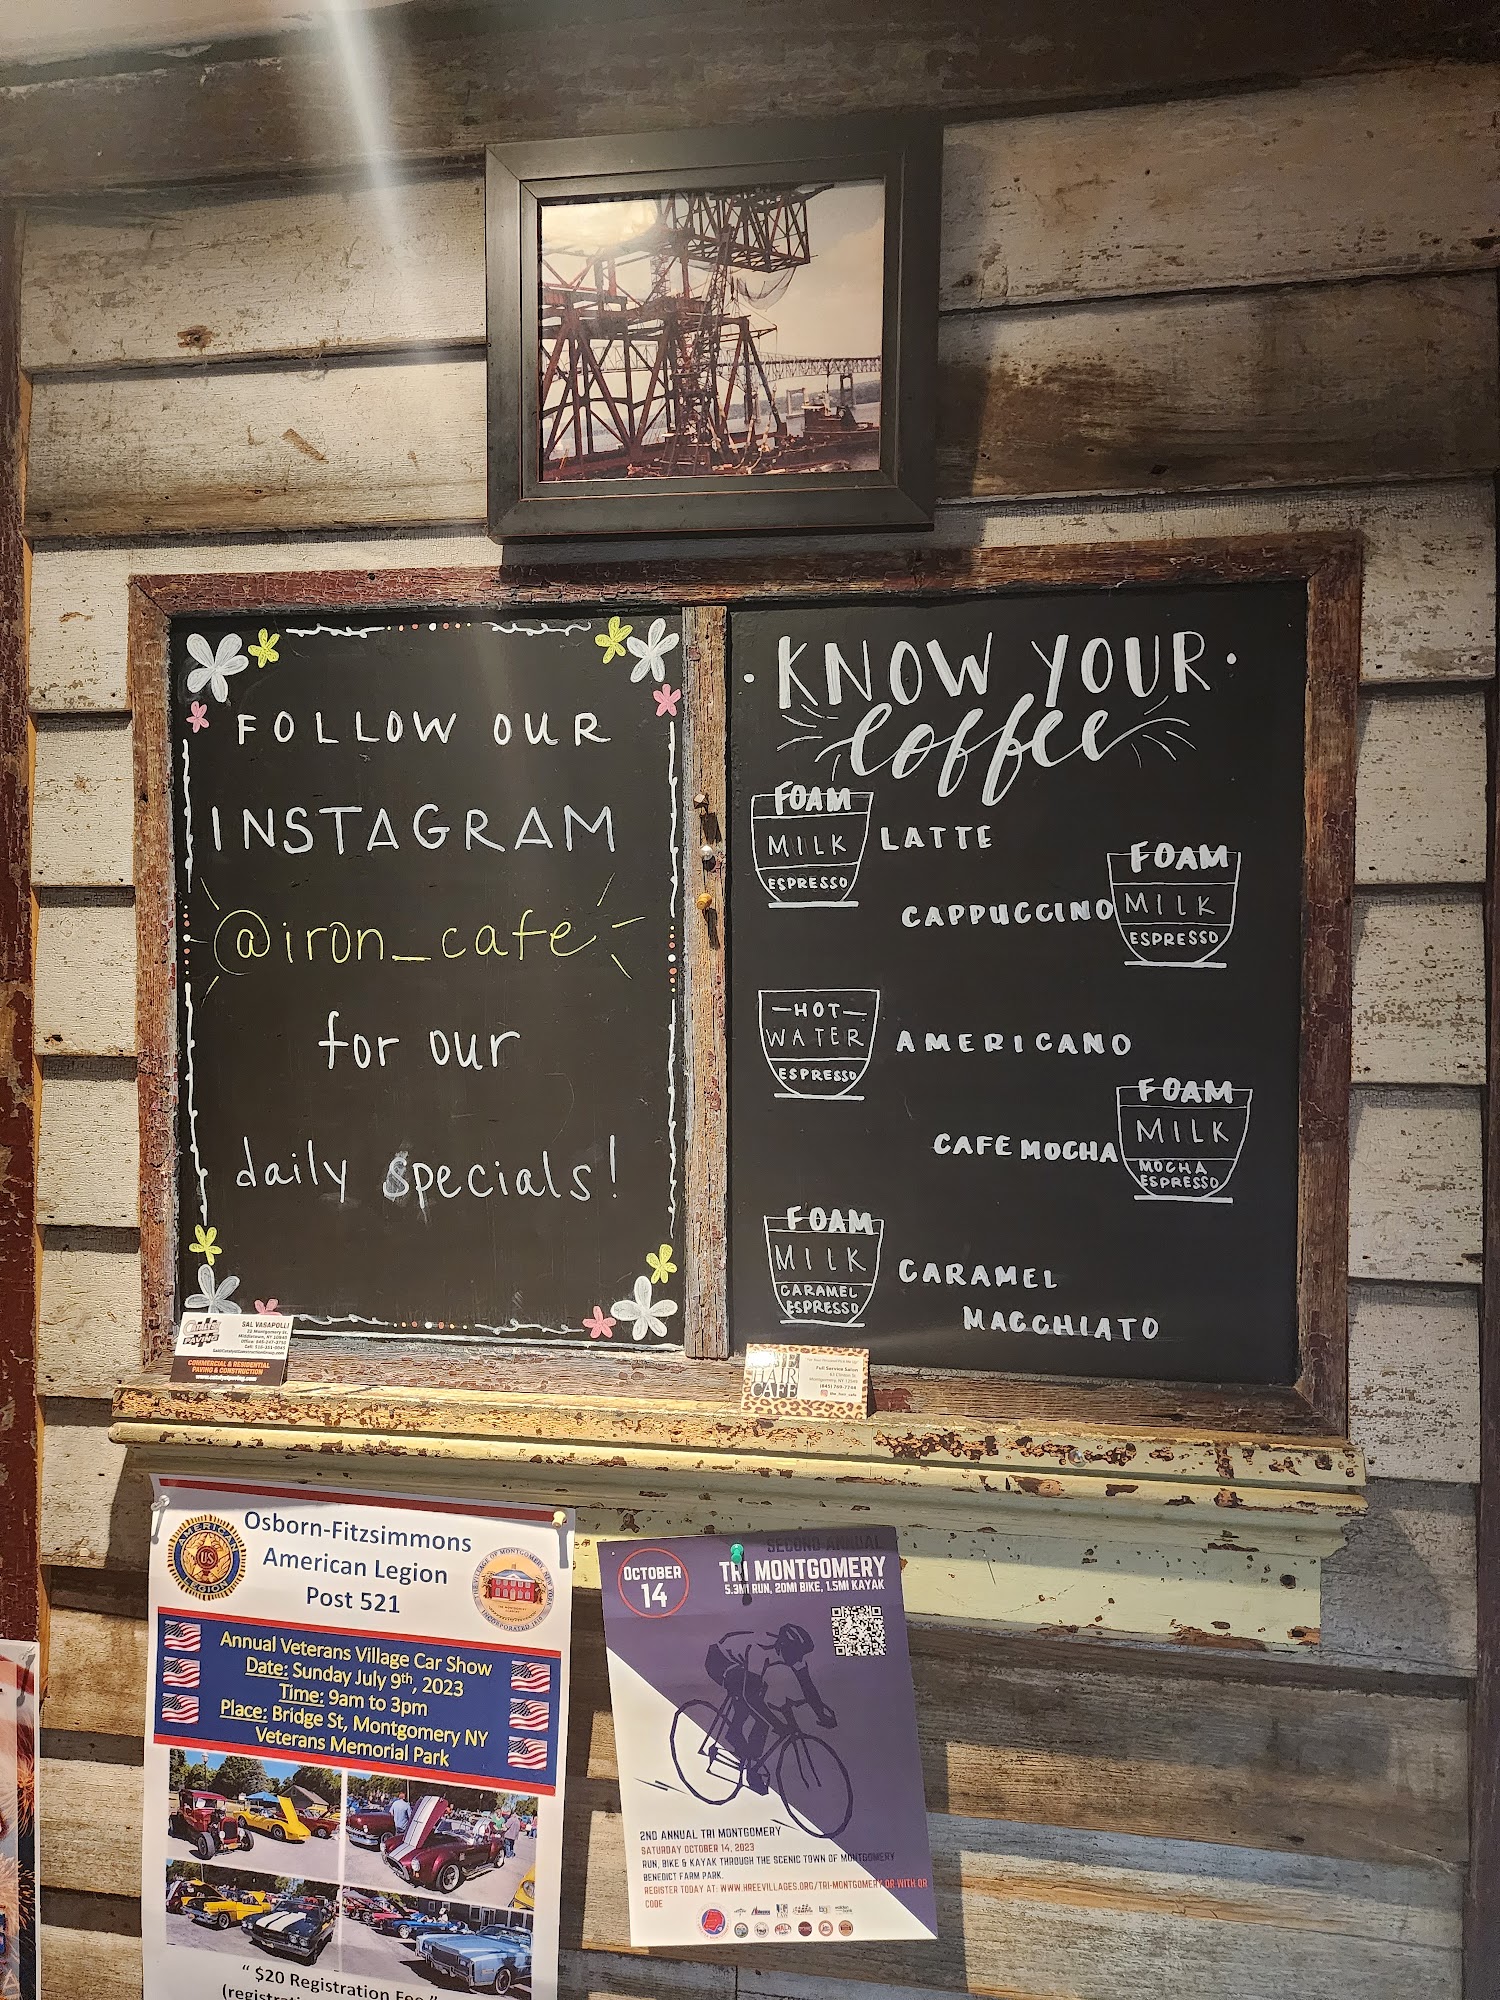 FOLLOW OUR
INSTAGRAM
@iron_cafe
for our
daily specials!
KNOW YOUR
coffee
FOAM
MILK
ESPRESSO
LATTE
FOAM
MILK
ESPRESSO
CAPPUCCINO
HOT
WATER
ESPRESSO
AMERICANO
FOAM
MILK
MOCHA
ESPRESSO
CAFE MOCHA
FOAM
MILK
CARAMEL
ESPRESSO
CARAMEL
MACCHIATO
PAVING
SAL VASAPOLLI
COMMERCIAL & RESIDENTIAL
PAVING & CONSTRUCTION
HAIR
CAFE
Full Service Salon
(845) 769-7744
Osborn-Fitzsimmons
American Legion
Post 521
AMERICAN
US
LEGION
Annual Veterans Village Car Show
Date: Sunday July 9th, 2023
Time: 9am to 3pm
Place: Bridge St, Montgomery NY
Veterans Memorial Park
" $20 Registration Fee "
OCTOBER
14
SECOND ANNUAL
TRI MONTGOMERY
5.3MI RUN, 20MI BIKE, 1.5MI KAYAK
2ND ANNUAL TRI MONTGOMERY
SATURDAY OCTOBER 14, 2023
RUN, BIKE & KAYAK THROUGH THE SCENIC TOWN OF MONTGOMERY
BENEDICT FARM PARK.
REGISTER TODAY AT: WWW.HREEVILLAGES.ORG/TRI-MONTGOMERY OR WITH QR
CODE